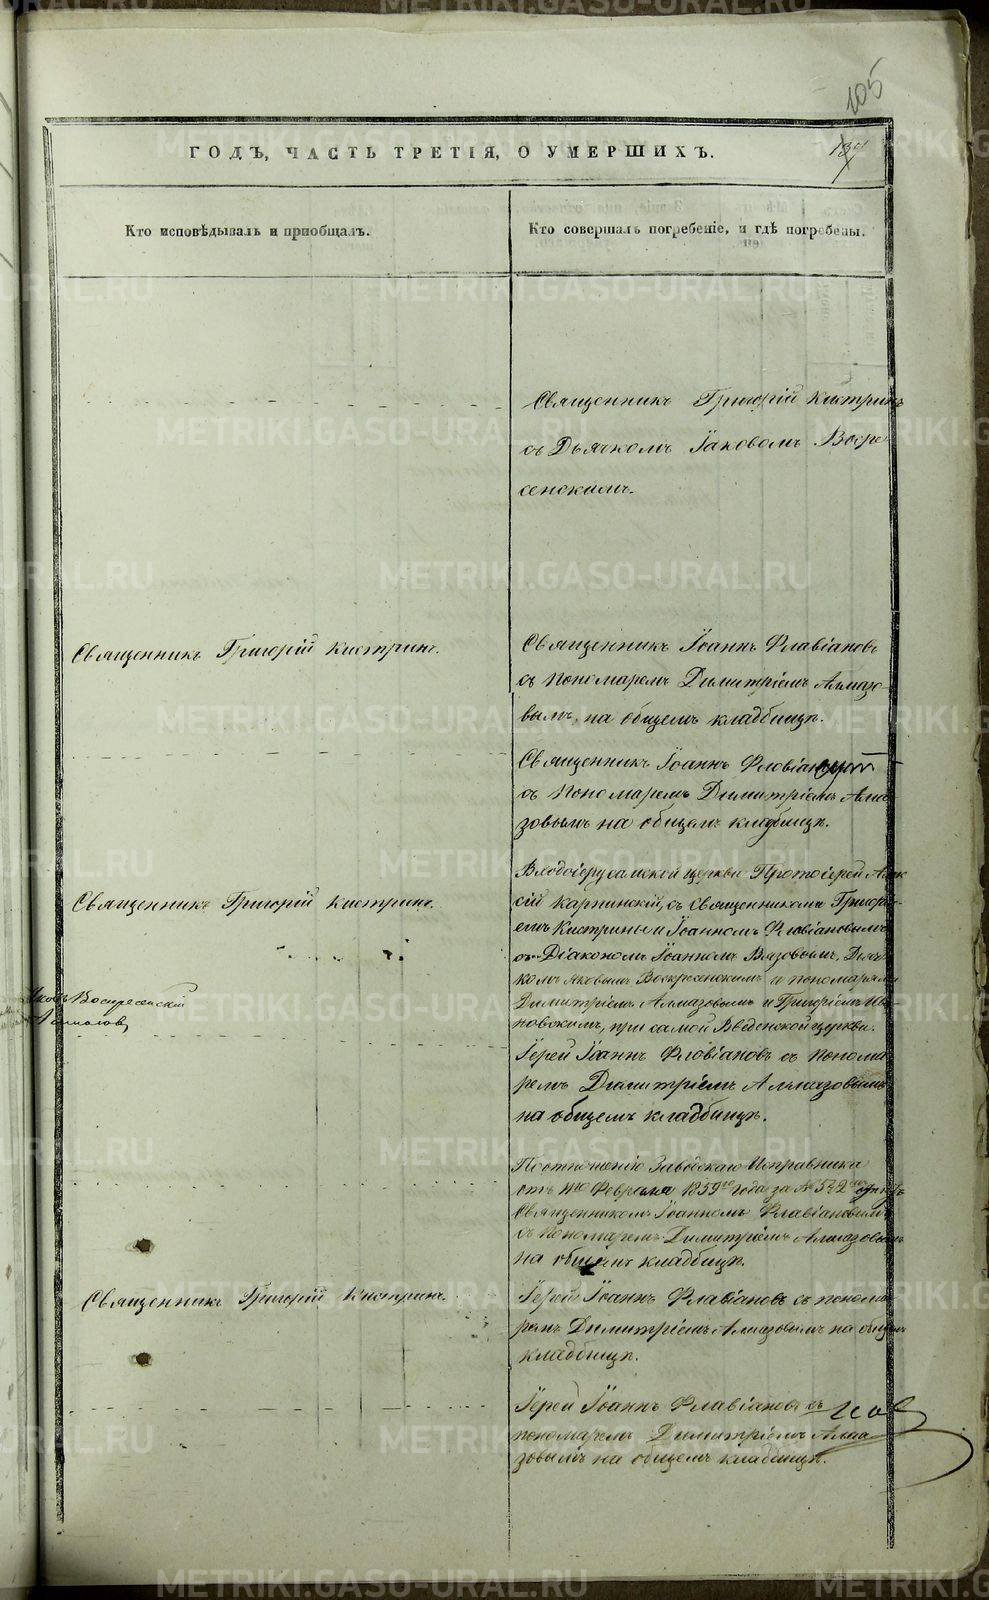 105
ГОДЪ, ЧАСТЬ ТРЕТІЯ, О УМЕРШИХЪ.
Кто исповѣдывалъ и пріобщалъ.
Кто совершалъ погребеніе, и гдѣ погребены.
Священникъ Григорій Кистринъ
съ Дьячкомъ Іаковомъ Воскре
сенскимъ.
Священникъ Григорій Кистринъ.
Священникъ Іоаннъ Флавіановъ
съ Пономаремъ Димитріемъ Алмазо-
вымъ, на общемъ кладбищѣ.
Священникъ Іоаннъ
съ Пономаремъ Димитріемъ Алма
зовымъ на общемъ кладбищѣ.
Священникъ Григорій Кистринъ.
Входоіерусалимской церкви Протоіерей Алек
сій Карпинскій, съ Священникомъ Григорі-
емъ Кистринымъ и Іоанномъ Флавіановымъ
съ Діакономъ Іоанномъ Вязовымъ, Дьяч
комъ Яковымъ Воскресенскимъ и пономарями
Димитріемъ Алмазовымъ и Григоріемъ Ива-
новскимъ, при самой Введенской церкви.
Яковъ Воскресенскій
Іерей Іоаннъ Флавіановъ съ Понома
ремъ Димитріемъ Алмазовымъ
на общемъ кладбищѣ.
По отношенію Заводскаго Исправника
отъ Февраля 1859го года за № 522
Священникомъ Іоанномъ Флавіановымъ
съ Пономаремъ Димитріемъ Алмазовымъ
на общемъ кладбищѣ.
Священникъ Григорій Кистринъ.
Іерей Іоаннъ Флавіановъ съ понома
ремъ Димитріемъ Алмазовымъ на общемъ
кладбищѣ.
Іерей Іоаннъ Флавіановъ съ
пономаремъ Димитріемъ Алма
зовымъ на общемъ кладбищѣ.
METRIKI.GASO-URAL.RU